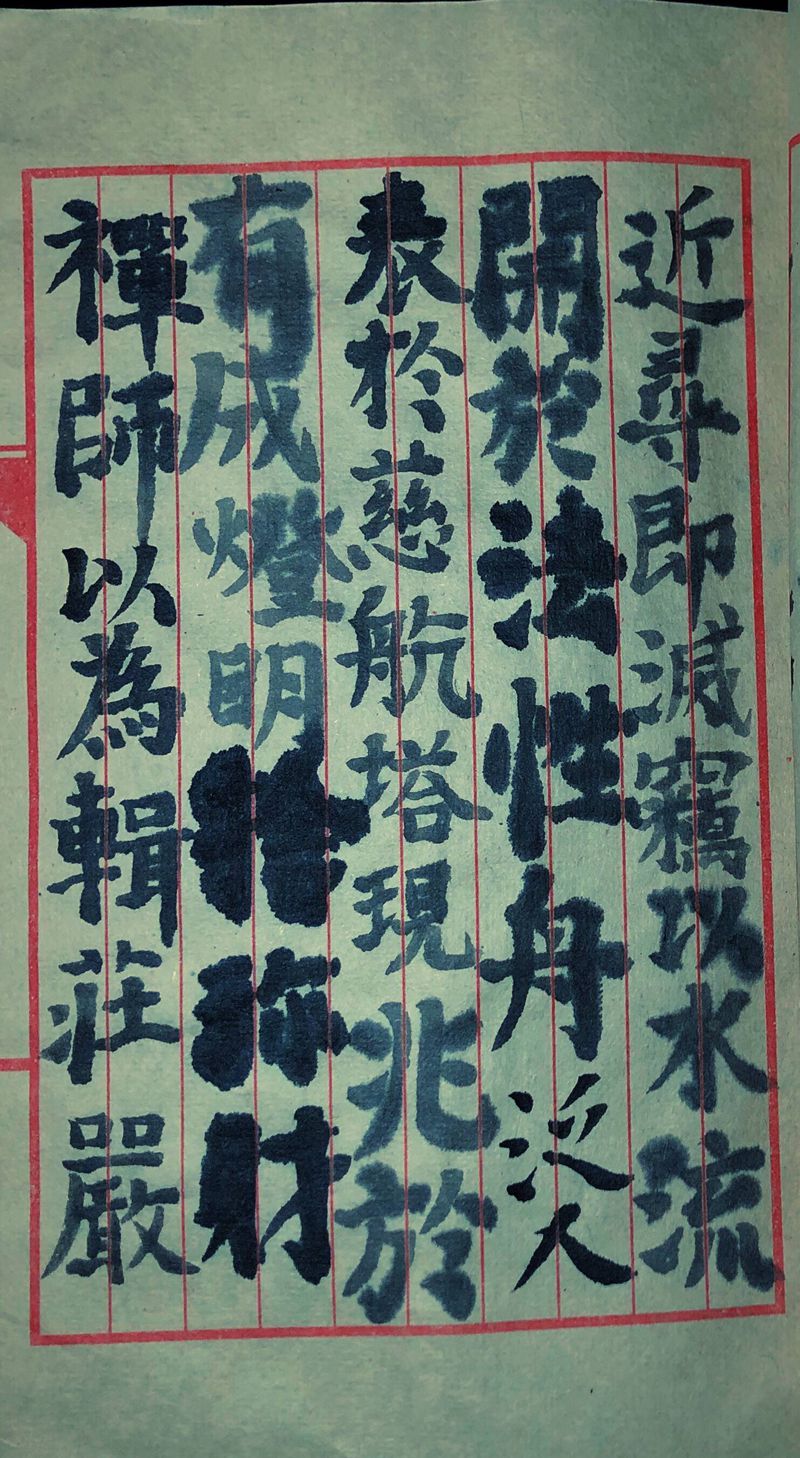 近尋即滅竊以水流
開於法性舟泛人
表於慈航塔現兆於
有成燈明珎財
禪師以為輯莊嚴